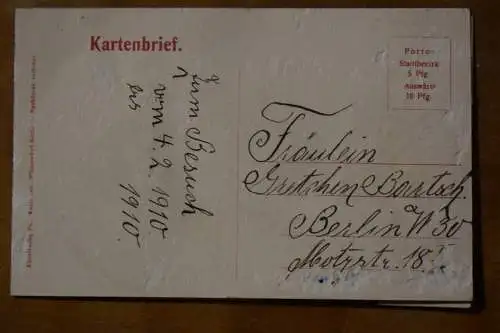 Kartenbrief.
Porto:
Stadtbezirk
5 Pfg.
Auswärts
10 Pfg.
Zum Besuch
vom 4.2.1910
bis
1910.
Fräulein
Gretchen Bartsch.
Berlin W 30
Motzstr. 18